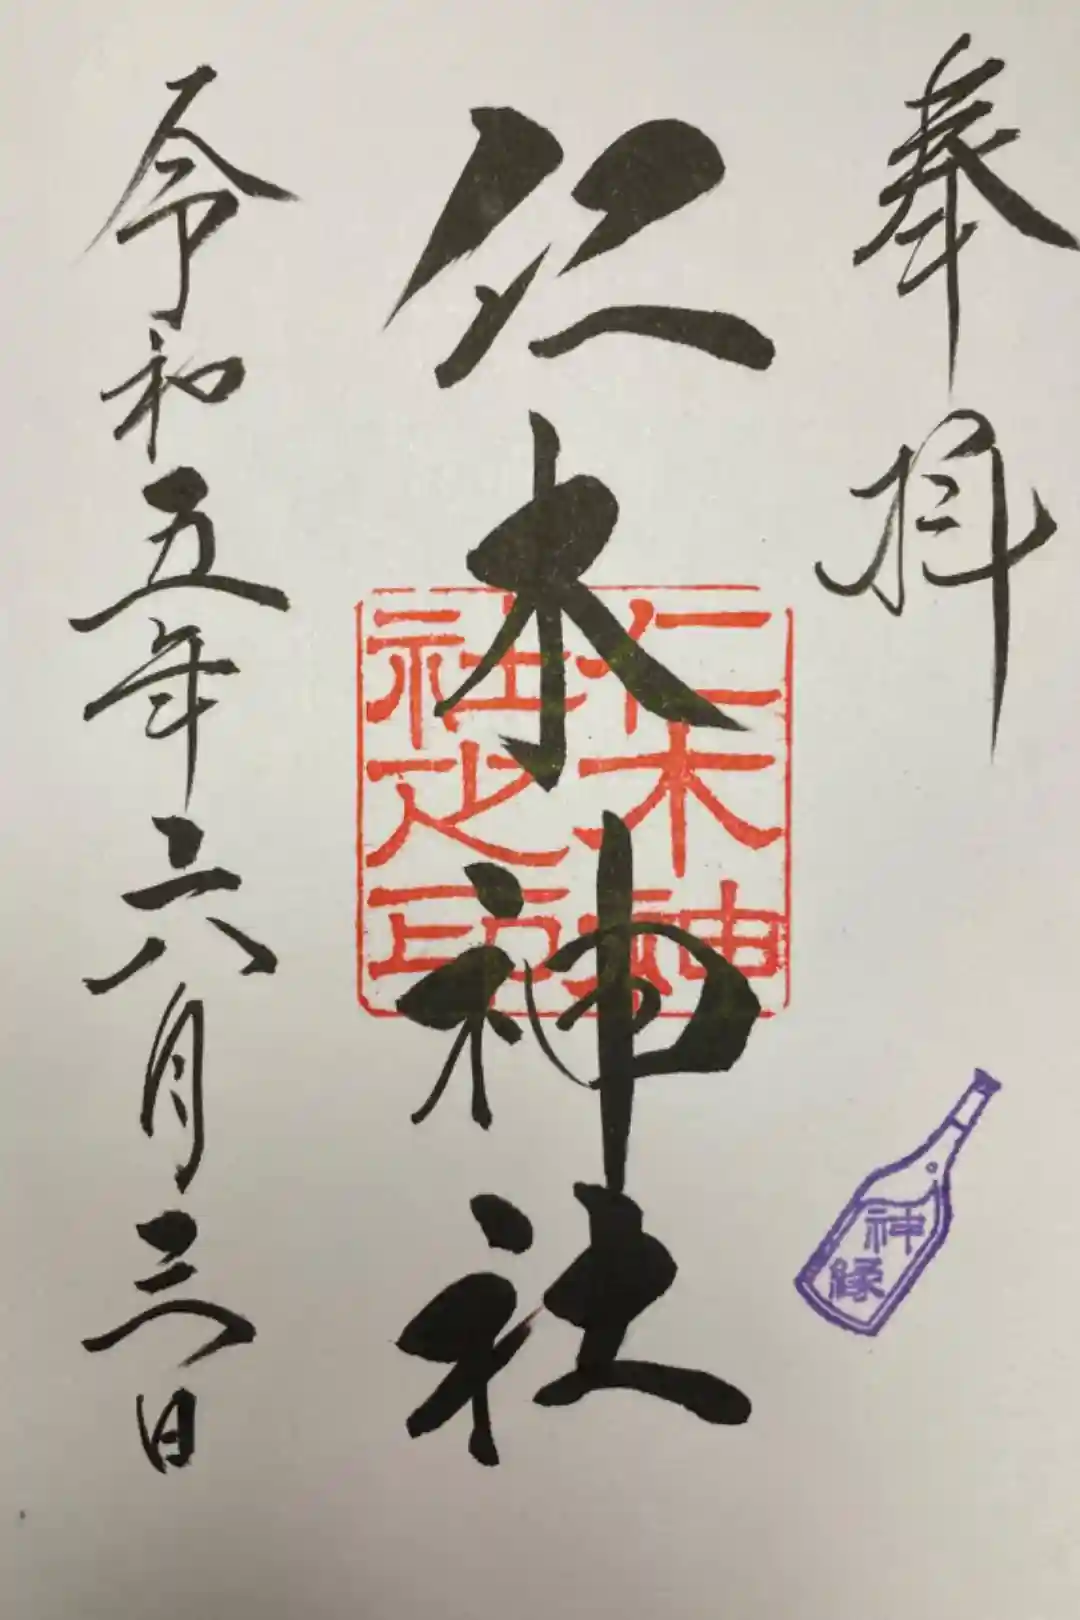 奉拝
仁木神社
仁木神
社之印
神縁
令和五年六月三日